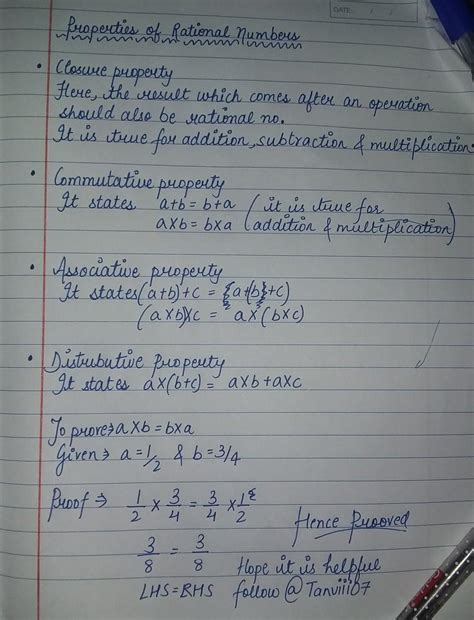 DATE: / /
Properties of Rational Numbers
• Closure property
Here, the result which comes after an operation
should also be rational no.
It is true for addition, subtraction & multiplication.
• Commutative property
It states a+b = b+a (it is true for
a×b = b×a addition & multiplication)
• Associative property
It states (a+b)+c = {a+(b}+c)
(a×b)×c = a×(b×c)
• Distributive Property
It states a×(b+c) = a×b+a×c
To prove⇒ a×b = b×a
Given⇒ a = 1/2 & b = 3/4
Proof ⇒ 1/2 × 3/4 = 3/4 × 1/2
Hence Prooved
3/8 = 3/8
Hope it is helpful
LHS = RHS follow @Tanviii07